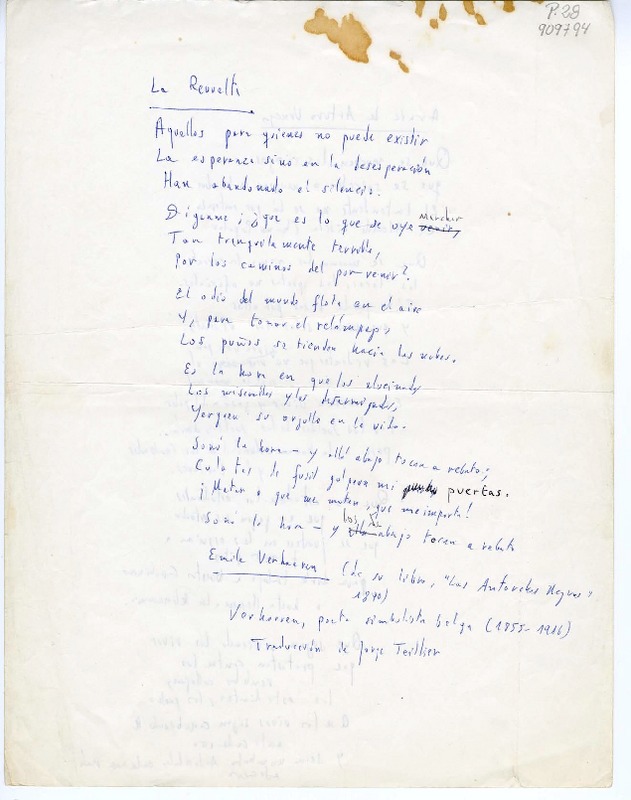 P.28
909794
La Revuelta
Aquellos para quienes no puede existir
La esperanza sino en la desesperación
Han abandonado el silencio.
Díganme ¿qué es lo que se oye venir, Marchar
Tan tranquilamente terrible,
Por los caminos del por-venir?
El odio del mundo flota en el aire
Y, para tomar el relámpago,
Los puños se tienden hacia las nubes.
Es la hora en que los alucinados
Los miserables y los desarraigados,
Yerguen su orgullo en la vida.
Sonó la hora - y allá abajo tocan a rebato;
Culatas de fusil golpean mi puertas.
¡Matar o que me maten, que me importa!
Sonó la hora - y allá abajo tocan a rebato
Emile Verhaeren (de su libro, "Las Antorchas Negras"
1890)
Verhaeren, poeta simbolista belga (1855-1916)
Traducción de Jorge Teillier